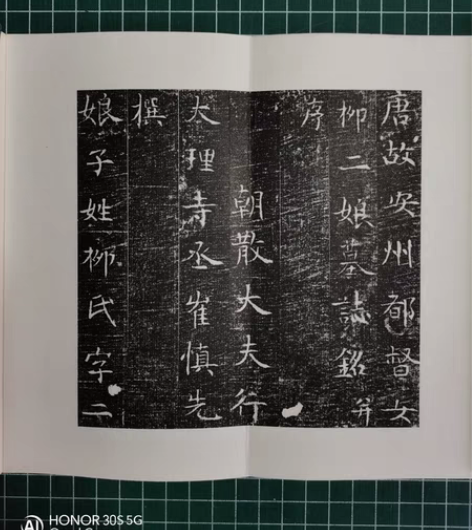 唐故安州都督女
柳二娘墓誌銘并
序
朝散大夫行
大理寺丞崔慎先
撰
娘子姓柳氏字二
HONOR 30S 5G